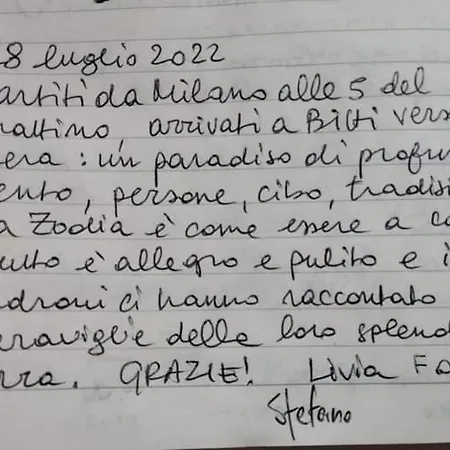 8 luglio 2022
artiti da Milano alle 5 del
attino, arrivati a Bitti vers
era: un paradiso di profu
ento, persone, cibo, tradisi
a Zodia è come essere a ca
utto è allegro e pulito e i
droni ci hanno raccontato
eraviglie delle loro splend
rra. GRAZIE! Livia Fa
Stefano